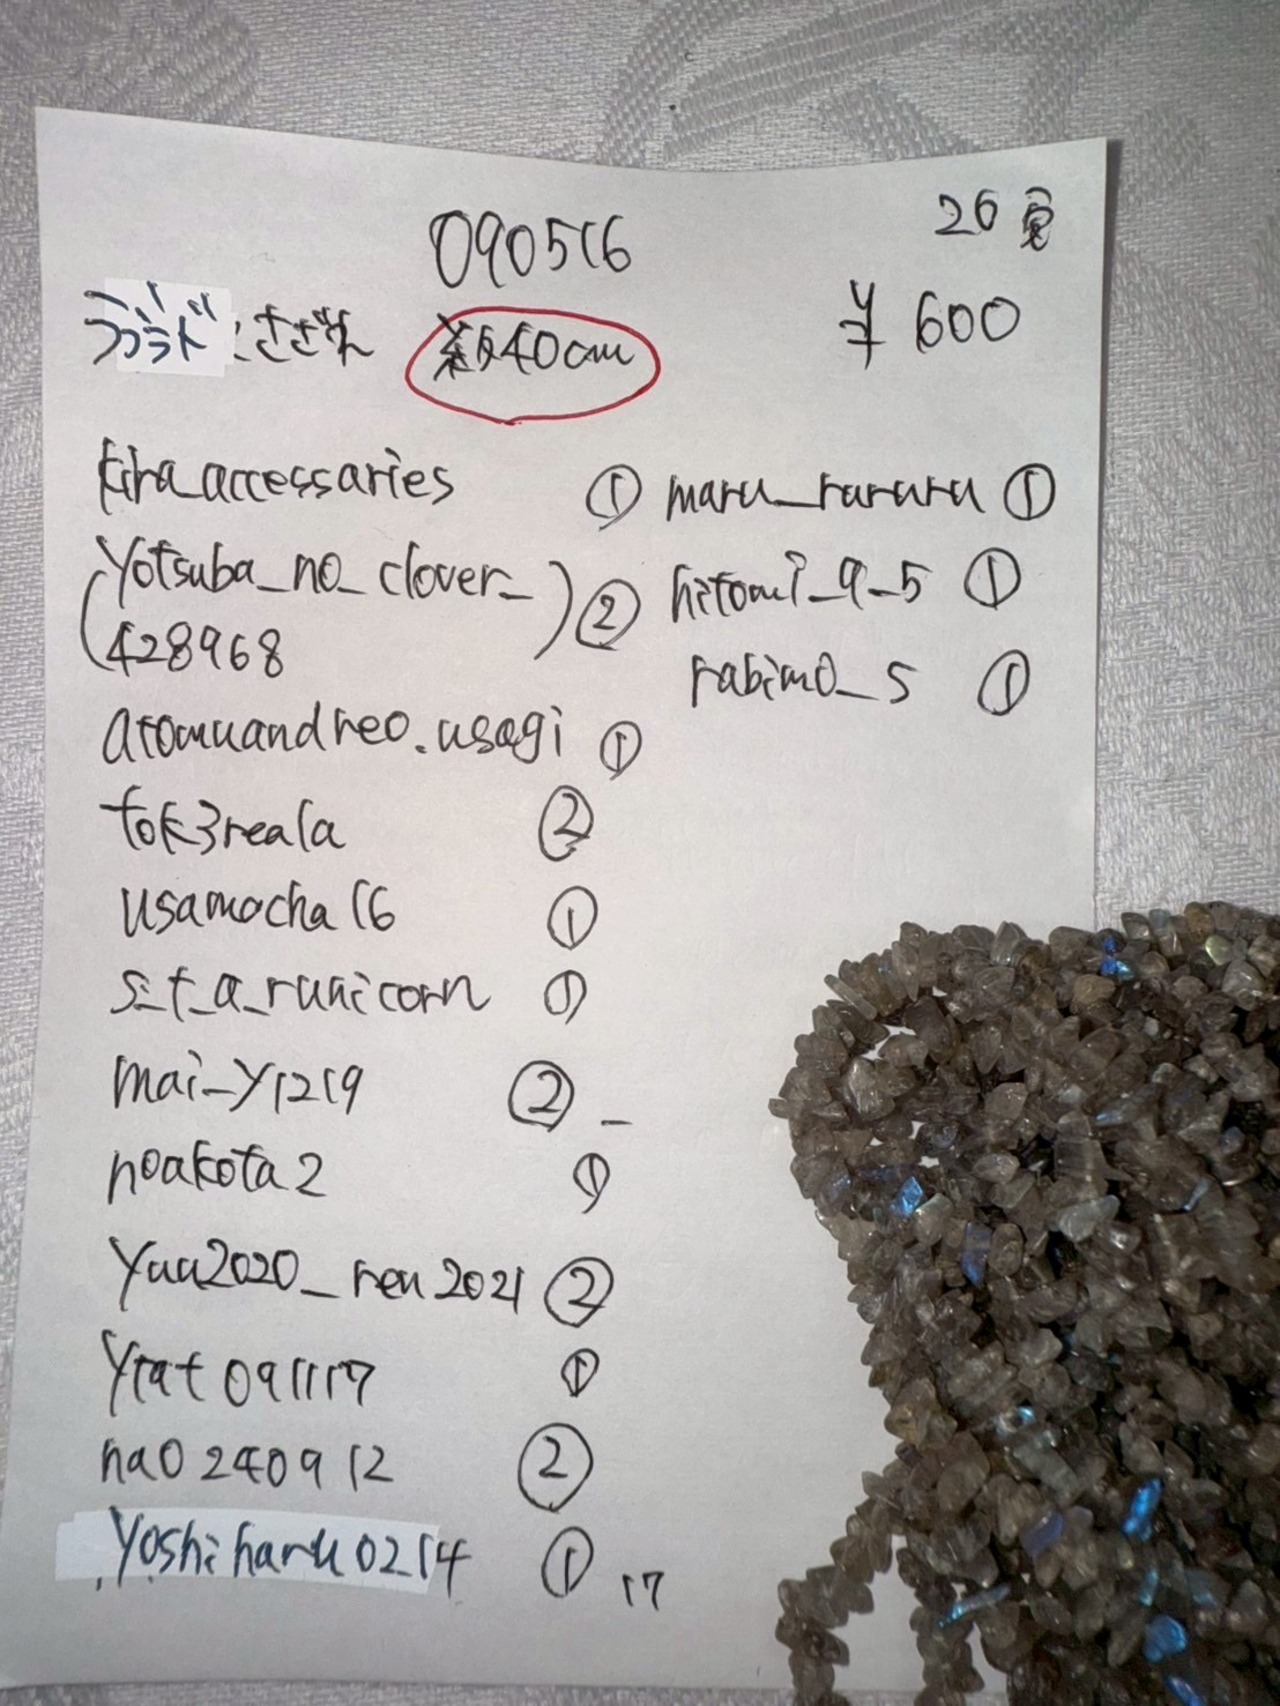 090516
20
ラブラド さざれ 約40cm
¥600
kiha_accessaries ①
(yotsuba_no_clover_
428968) ②
atomuandreo.usagi ①
tok3reala ②
usamocha16 ①
s_t_a_runicorn ①
mai_y1219 ②
noakota2 ①
yuu2020_ren2021 ②
ytat091117 ①
na0240912 ②
yoshiharu0214 ① 17
maru_rururu ①
hitomi_9_5 ①
rabimo_s ①